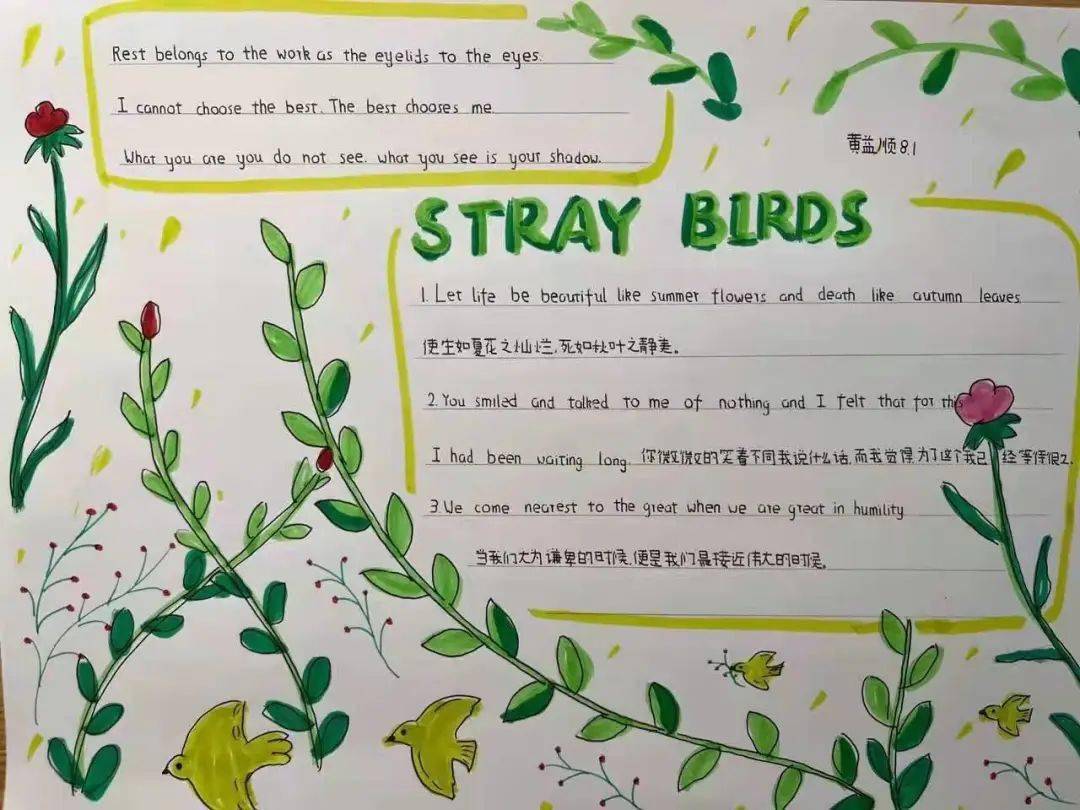 Rest belongs to the work as the eyelids to the eyes.
I cannot choose the best. The best chooses me.
What you are you do not see. what you see is your shadow.
黄益顺 8.1
STRAY BIRDS
1. Let life be beautiful like summer flowers and death like autumn leaves
使生如夏花之灿烂,死如秋叶之静美。
2. You smiled and talked to me of nothing and I felt that for this
I had been waiting long. 你微微的笑着不同我说什么话,而我觉得为了这个我已经等待很久.
3. We come nearest to the great when we are great in humility
当我们大为谦卑的时候,便是我们最接近伟大的时候。